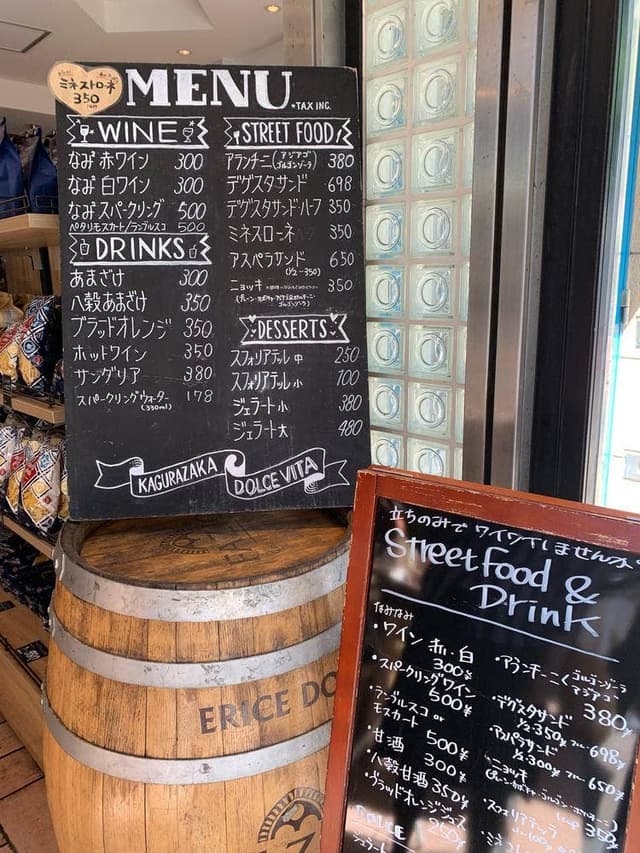 ミネストローネ
350
MENU
*TAX INC.
WINE
なみ 赤ワイン 300
なみ 白ワイン 300
なみ スパークリング 500
ペタリモスカート/ランブルスコ 500
DRINKS
あまざけ 300
八穀あまざけ 350
ブラッドオレンジ 350
ホットワイン 350
サングリア 380
スパークリングウォーター 178
(330ml)
STREET FOOD
アランチーニ(アジアゴ 380
ゴルゴンゾーラ)
デグスタサンド 698
デグスタサンド・ハーフ 350
ミネストローネ 350
アスパラサンド 650
(1/2-350)
ニョッキ 350
DESSERTS
スフォリアテッレ 中 250
スフォリアテッレ 小 100
ジェラート 小 380
ジェラート 大 480
KAGURAZAKA DOLCE VITA
ERICE DO
立ちのみで ワイワイしませんか
Street food &
Drink
なみなみ
・ワイン 赤・白
300¥
・スパークリングワイン
500¥
・ランブルスコ or
モスカート 500¥
・甘酒 300¥
・八穀甘酒 350¥
・ブラッドオレンジジュース
250¥
DOLCE
ジェラート
・アランチーニ(ゴルゴンゾーラ
アジアゴ
380¥
・デグスタサンド
1/2-350¥ フル-698¥
・アスパラサンド
1/2-300¥ フル-650¥
・ニョッキ
350
・スフォリアテッラ